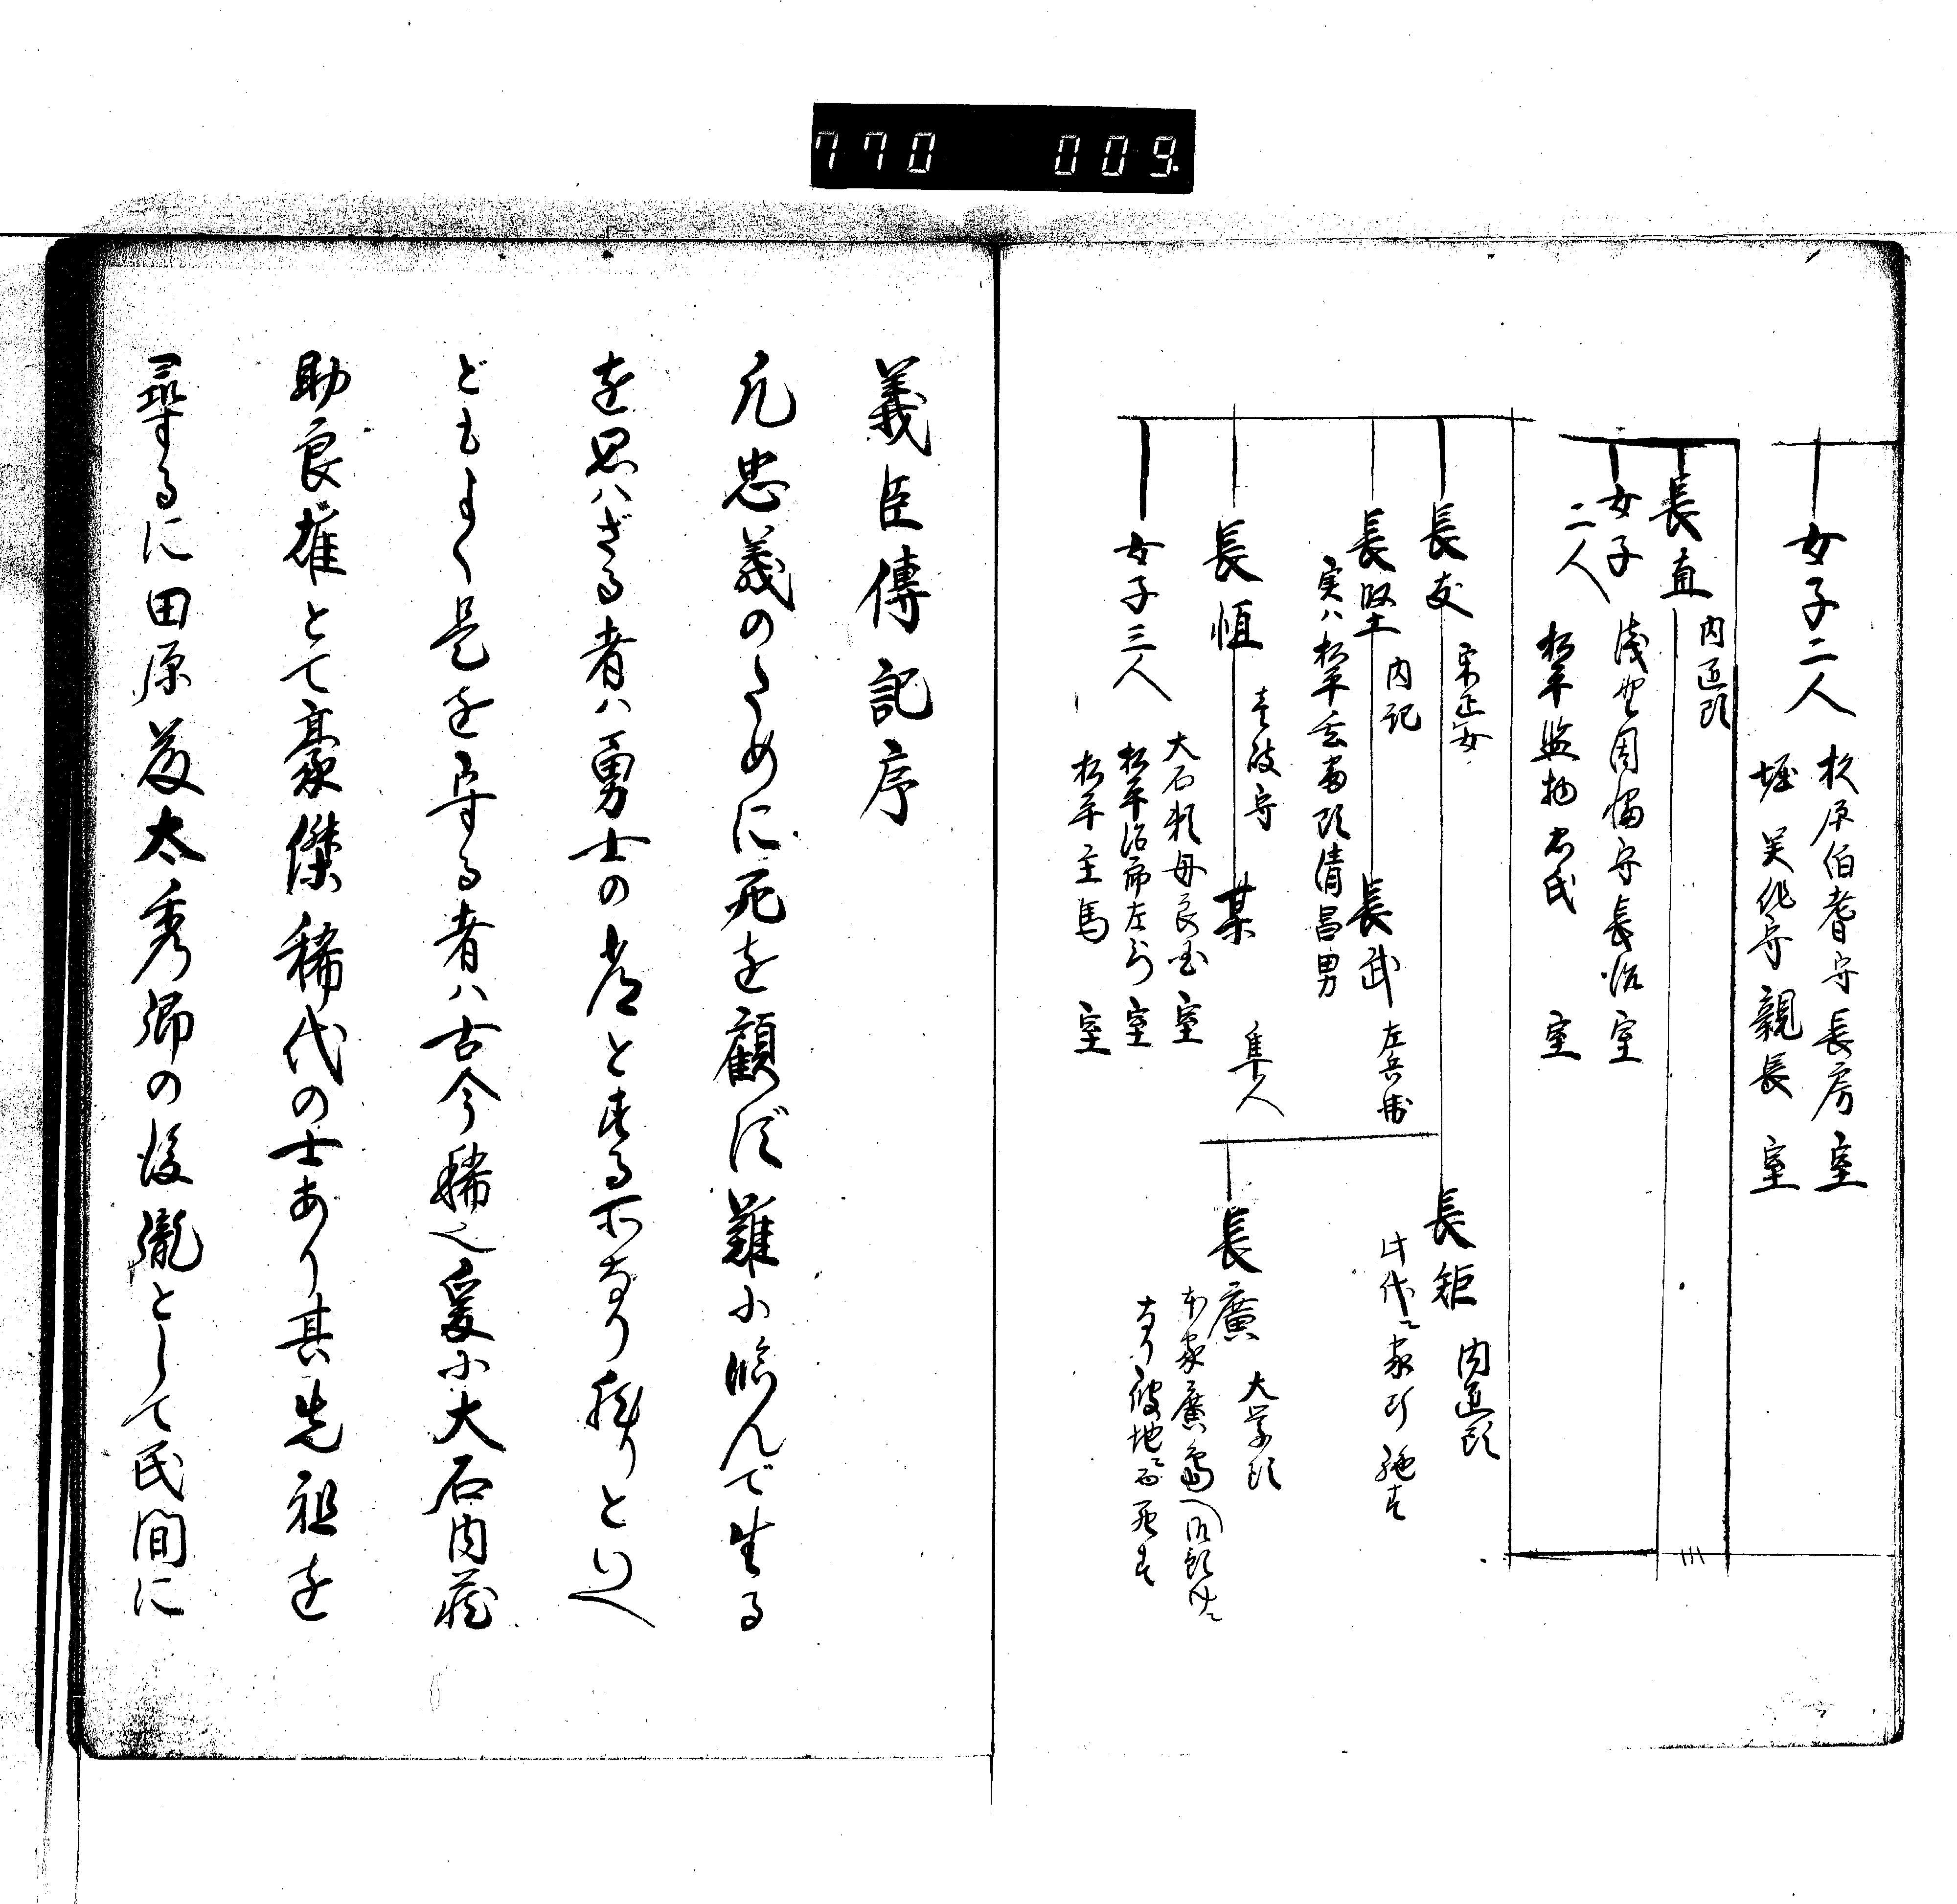 770 009
女子二人
杉原伯耆守長房 室
堀美作守親長 室
長直 内匠頭
女子二人
浅野因幡守長治 室
松平監物忠氏 室
長友 采女正
長矩 内匠頭
此代ニ家断絶す
長賢 内記
長武 左兵衛
実ハ松平玄蕃頭清昌男
長恒 壱岐守
某 隼人
長廣 大学頭
本家廣島へ御預ケニ
なり彼地ニ而死す
女子三人
大石頼母良重 室
松平治郎左衛門 室
松平主馬 室
義臣傳記序
凡忠義のために死を顧ず難に臨んで生る
を思ハざる者ハ勇士の常とする所なり然りといへ
どもよく是を守る者ハ古今稀也爰に大石内蔵
助良雄とて豪傑稀代の士あり其先祖を
尋するに田原藤太秀郷の後胤として民間に